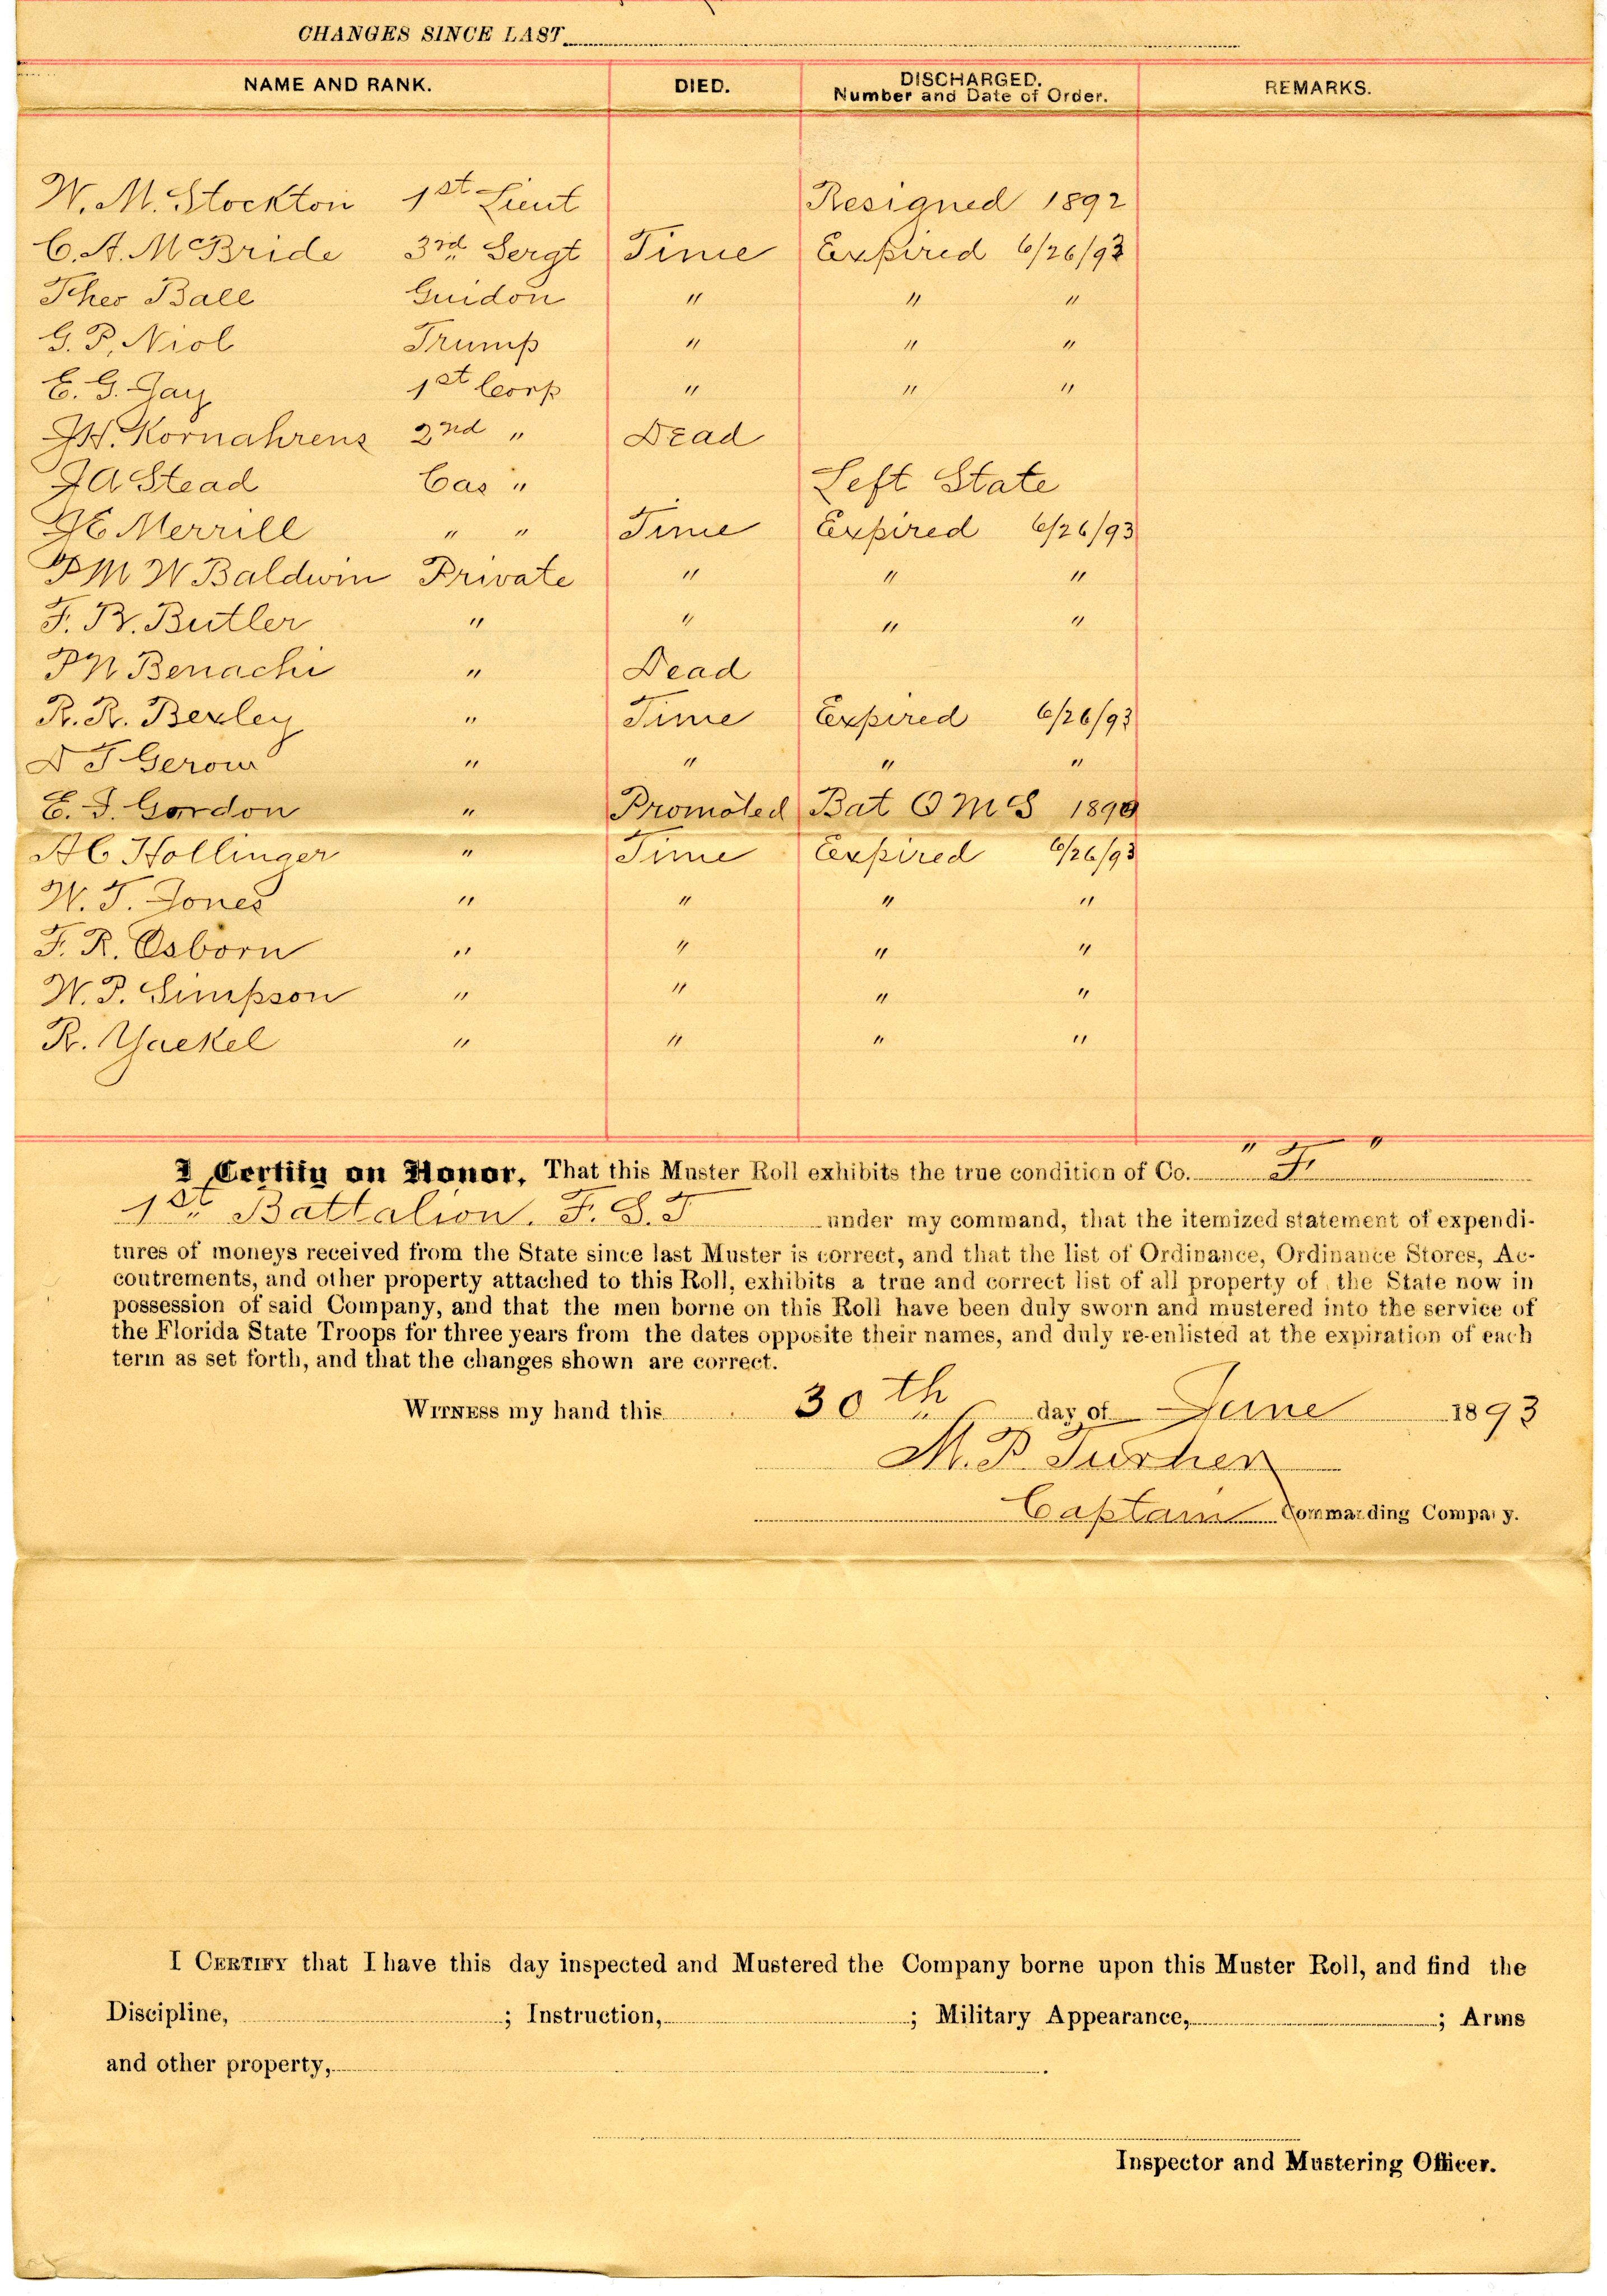 CHANGES SINCE LAST
NAME AND RANK. DIED. DISCHARGED. Number and Date of Order. REMARKS.
W. M. Stockton 1st Lieut Resigned 1892
C. A. McBride 3rd Sergt Time Expired 6/26/93
Theo Ball Guidon " " "
G. P. Niol Trump " " "
E. G. Jay 1st Corp " " "
J H. Kornahrens 2nd " Dead
J A Stead Cas " Left State
Merrill " " Time Expired 6/26/93
P M W Baldwin Private " " "
F. B. Butler " " " "
P N Benachi " Dead
R. R. Bexley " Time Expired 6/26/93
D T Gerow " " " "
E. J. Gordon " Promoted Bat Q M S 1890
A C Hollinger " Time Expired 6/26/93
W. T. Jones " " " "
F. R. Osborn " " " "
W. P. Simpson " " " "
R. Yaekel " " " "
I Certify on Honor, That this Muster Roll exhibits the true condition of Co. " F. "
1st Battalion. F. S. T under my command, that the itemized statement of expendi-
tures of moneys received from the State since last Muster is correct, and that the list of Ordinance, Ordinance Stores, Ac-
coutrements, and other property attached to this Roll, exhibits a true and correct list of all property of the State now in
possession of said Company, and that the men borne on this Roll have been duly sworn and mustered into the service of
the Florida State Troops for three years from the dates opposite their names, and duly re-enlisted at the expiration of each
term as set forth, and that the changes shown are correct.
WITNESS my hand this 30th day of June 1893
M. P. Turner
Captain Commanding Company.
I CERTIFY that I have this day inspected and Mustered the Company borne upon this Muster Roll, and find the
Discipline, ; Instruction, ; Military Appearance, ; Arms
and other property, .
Inspector and Mustering Officer.